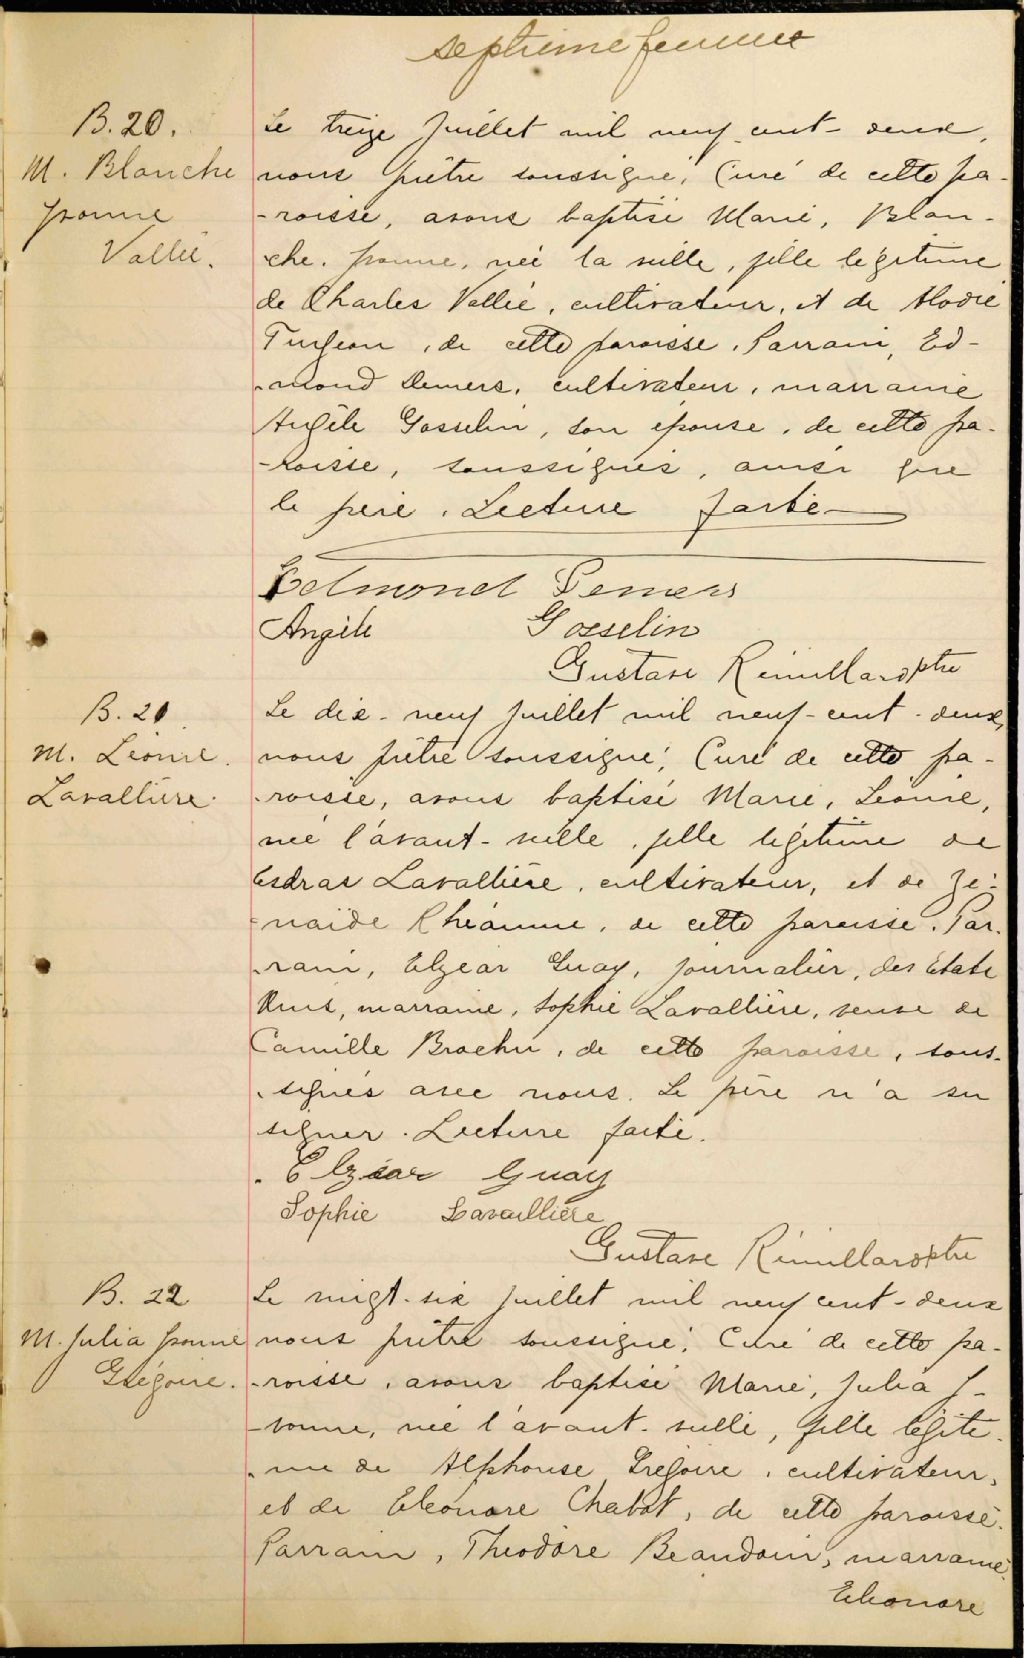 septième feuillet
B. 20.
M. Blanche
Yvonne
Vallée.
Le treize Juillet mil neuf cent-deux,
nous prêtre soussigné, Curé de cette pa-
-roisse, avons baptisé Marie, Blan-
-che. Yvonne, née la veille, fille légitime
de Charles Vallée, cultivateur, et de Alodie
Turgeon, de cette paroisse. Parrain, Ed-
-mond Demers, cultivateur, marraine
Angèle Gosselin, son épouse, de cette pa-
-roisse, soussignés, ainsi que
le père. Lecture faite
Edmond Demers
Angèle Gosselin
Gustave Rémillard ptre
B. 21
M. Léonie.
Lavallière.
Le dix-neuf Juillet mil neuf-cent-deux,
nous prêtre soussigné, Curé de cette pa-
-roisse, avons baptisé Marie, Léonie,
née l'avant-veille, fille légitime de
Esdras Lavallière, cultivateur, et de Zé-
-naïde Rhéaume, de cette paroisse. Par-
-rain, Elzear Guay, journalier, des Etats
Unis, marraine, Sophie Lavallière, veuve de
Camille Brochu, de cette paroisse, sous-
-signés avec nous. Le père n'a su
signer. Lecture faite.
Elzéar Guay
Sophie Lavallière
Gustave Rémillard ptre
B. 22
M. Julia Yvonne
Grégoire.
Le vingt-six Juillet mil neuf cent-deux
nous prêtre soussigné, Curé de cette pa-
-roisse, avons baptisé Marie, Julia Y-
-vonne, née l'avant-veille, fille légiti-
-me de Alphonse Grégoire, cultivateur,
et de Eléonore Chabot, de cette paroisse.
Parrain, Théodore Beaudoin, marraine
Eléonore